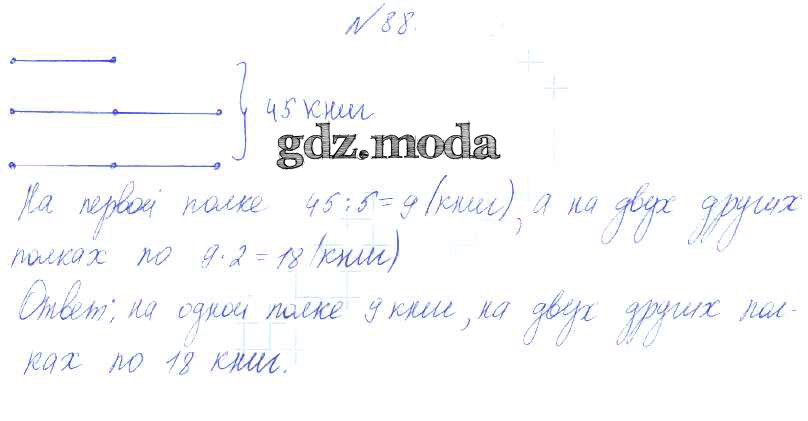 № 88.
45 книг
gdz.moda
На первой полке 45:5=9 (книг), а на двух других
полках по 9·2=18 (книг)
Ответ: на одной полке 9 книг, на двух других пол-
ках по 18 книг.